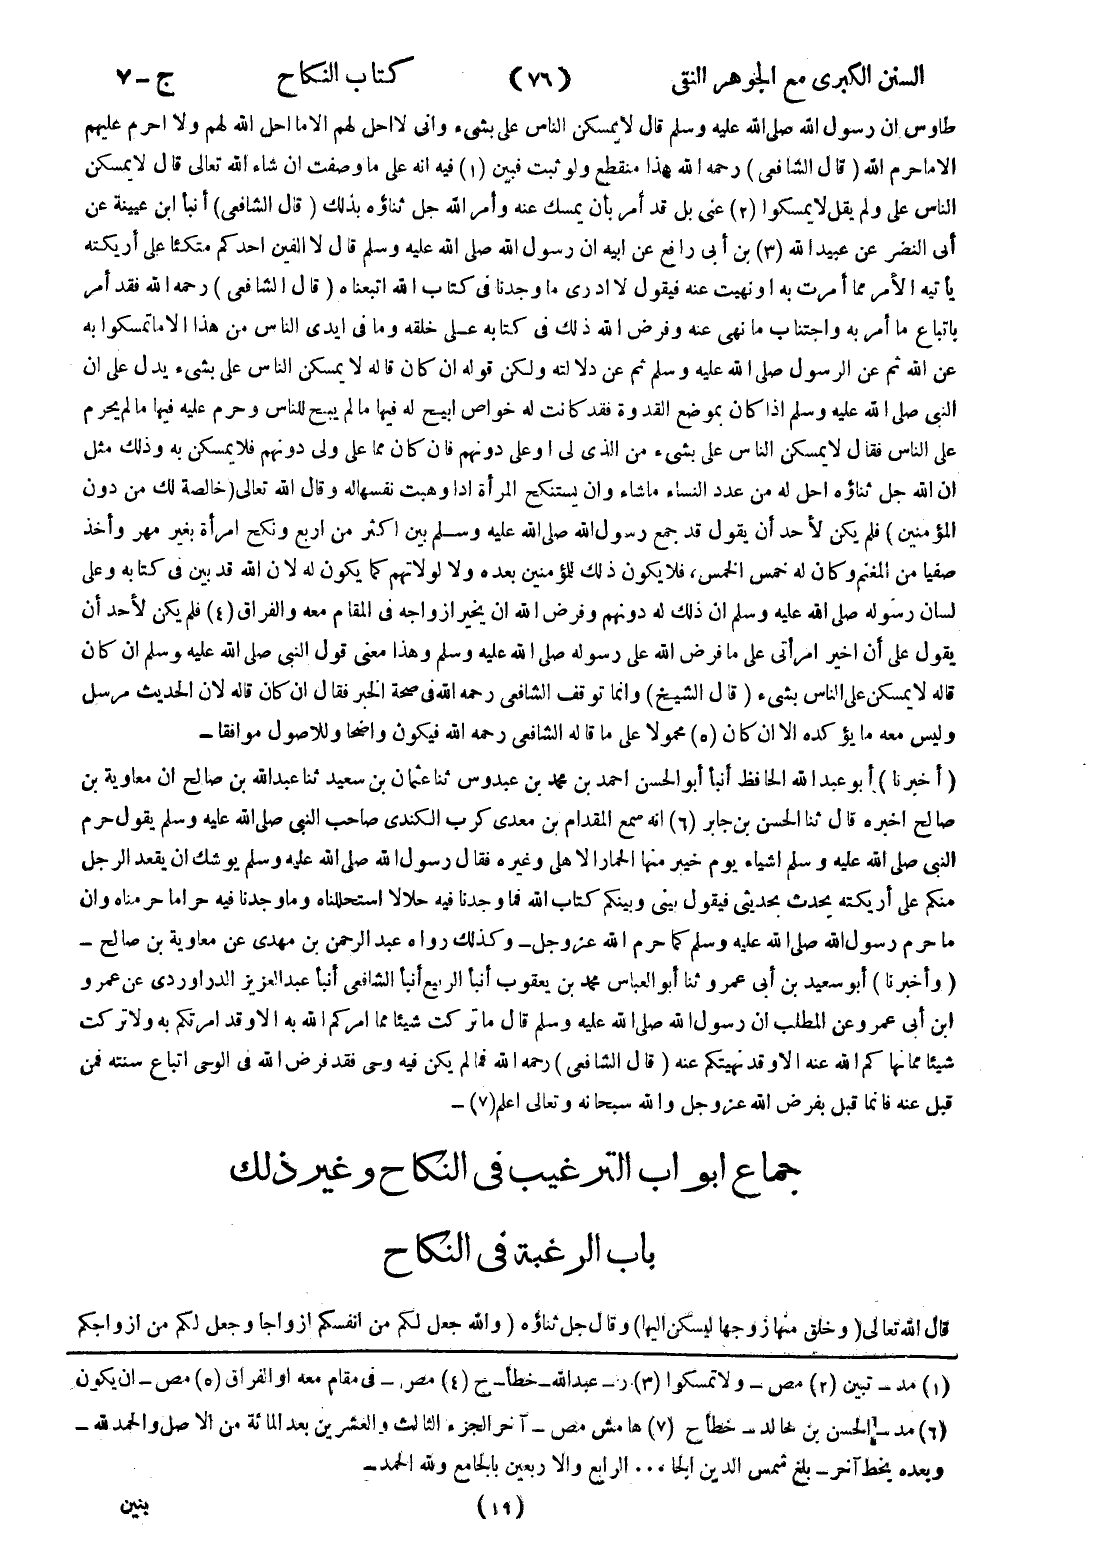 السنن الكبرى مع الجوهر النقى (٧٦) كتاب النكاح ج - ٧
طاوس ان رسول الله صلى الله عليه وسلم قال لا يمسكن الناس على بشىء وانى لا احل لهم الا ما احل الله لهم ولا احرم عليهم
الا ما حرم الله ( قال الشافعى ) رحمه الله هذا منقطع ولو ثبت فبين (١) فيه انه على ما وصفت ان شاء الله تعالى قال لا يمسكن
الناس على ولم يقل لا يمسكوا (٢) عنى بل قد أمر بأن يمسك عنه وأمر الله جل ثناؤه بذلك ( قال الشافعى) أنبأ ابن عيينة عن
أبى النضر عن عبيد الله (٣) بن أبى رافع عن ابيه ان رسول الله صلى الله عليه وسلم قال لا الفين احدكم متكئا على أريكته
يأتيه الأمر مما أمرت به او نهيت عنه فيقول لا ادرى ما وجدنا فى كتاب الله اتبعناه ( قال الشافعى ) رحمه الله فقد أمر
باتباع ما أمر به واجتناب ما نهى عنه وفرض الله ذلك فى كتابه على خلقه وما فى ايدى الناس من هذا الا ما تمسكوا به
عن الله ثم عن الرسول صلى الله عليه وسلم ثم عن دلالته ولكن قوله ان كان قاله لا يمسكن الناس على بشىء يدل على ان
النبى صلى الله عليه وسلم اذا كان بموضع القدوة فقد كانت له خواص ابيح له فيها ما لم يبح للناس وحرم عليه فيها ما لم يحرم
على الناس فقال لا يمسكن الناس على بشىء من الذى لى او على دونهم فان كان مما على ولى دونهم فلا يمسكن به وذلك مثل
ان الله جل ثناؤه احل له من عدد النساء ماشاء وان يستنكح المرأة اذا وهبت نفسها له وقال الله تعالى (خالصة لك من دون
المؤمنين ) فلم يكن لأحد أن يقول قد جمع رسول الله صلى الله عليه وسلم بين اكثر من اربع ونكح امرأة بغير مهر وأخذ
صفيا من المغنم وكان له خمس الخمس، فلا يكون ذلك للمؤمنين بعده ولا لولاتهم كما يكون له لان الله قد بين فى كتابه وعلى
لسان رسوله صلى الله عليه وسلم ان ذلك له دونهم وفرض الله ان يخير ازواجه فى المقام معه والفراق (٤) فلم يكن لأحد أن
يقول على أن اخير امرأتى على ما فرض الله على رسوله صلى الله عليه وسلم وهذا معنى قول النبى صلى الله عليه وسلم ان كان
قاله لا يمسكن على الناس بشىء ( قال الشيخ) وانما توقف الشافعى رحمه الله فى صحة الخبر فقال ان كان قاله لان الحديث مرسل
وليس معه ما يؤكده الا ان كان (٥) محمولا على ما قاله الشافعى رحمه الله فيكون واضحا وللاصول موافقا -
( أخبرنا ) أبو عبد الله الحافظ أنبأ أبو الحسن احمد بن محمد بن عبدوس ثنا عثمان بن سعيد ثنا عبدالله بن صالح ان معاوية بن
صالح اخبره قال ثنا الحسن بن جابر (٦) انه سمع المقدام بن معدى كرب الكندى صاحب النبى صلى الله عليه وسلم يقول حرم
النبى صلى الله عليه وسلم اشياء يوم خيبر منها الحمار الاهلى وغيره فقال رسول الله صلى الله عليه وسلم يوشك ان يقعد الرجل
منكم على أريكته يحدث بحديثى فيقول بينى وبينكم كتاب الله فما وجدنا فيه حلالا استحللناه وما وجدنا فيه حراما حرمناه وان
ما حرم رسول الله صلى الله عليه وسلم كما حرم الله عز وجل - وكذلك رواه عبد الرحمن بن مهدى عن معاوية بن صالح -
( وأخبرنا ) أبو سعيد بن أبى عمرو ثنا أبو العباس محمد بن يعقوب أنبأ الربيع أنبأ الشافعى أنبأ عبد العزيز الدراوردى عن عمرو
ابن أبى عمرو عن المطلب ان رسول الله صلى الله عليه وسلم قال ما تركت شيئا مما امركم الله به الا وقد امرتكم به ولا تركت
شيئا مما نهاكم الله عنه الا وقد نهيتكم عنه ( قال الشافعى ) رحمه الله فما لم يكن فيه وحى فقد فرض الله فى الوحى اتباع سنته فمن
قبل عنه فانما قبل بفرض الله عز وجل والله سبحانه وتعالى اعلم (٧) -
جماع ابواب الترغيب فى النكاح وغير ذلك
باب الرغبة فى النكاح
قال الله تعالى ( وخلق منها زوجها ليسكن اليها) وقال جل ثناؤه ( والله جعل لكم من انفسكم ازواجا وجعل لكم من ازواجكم
(١) مد - تبين (٢) مص - ولا تمسكوا (٣) ر - عبدالله - خطأ - ح (٤) مص - فى مقام معه او الفراق (٥) مص - ان يكون
(٦) مد - الحسن بن خالد - خطأ ح (٧) هامش مص - آخر الجزء الثالث والعشرين بعد المائة من الاصل والحمد لله -
وبعده بخط آخر - بلغ شمس الدين الجا ... الرابع والاربعين بالجامع ولله الحمد -
(١٩) بنين